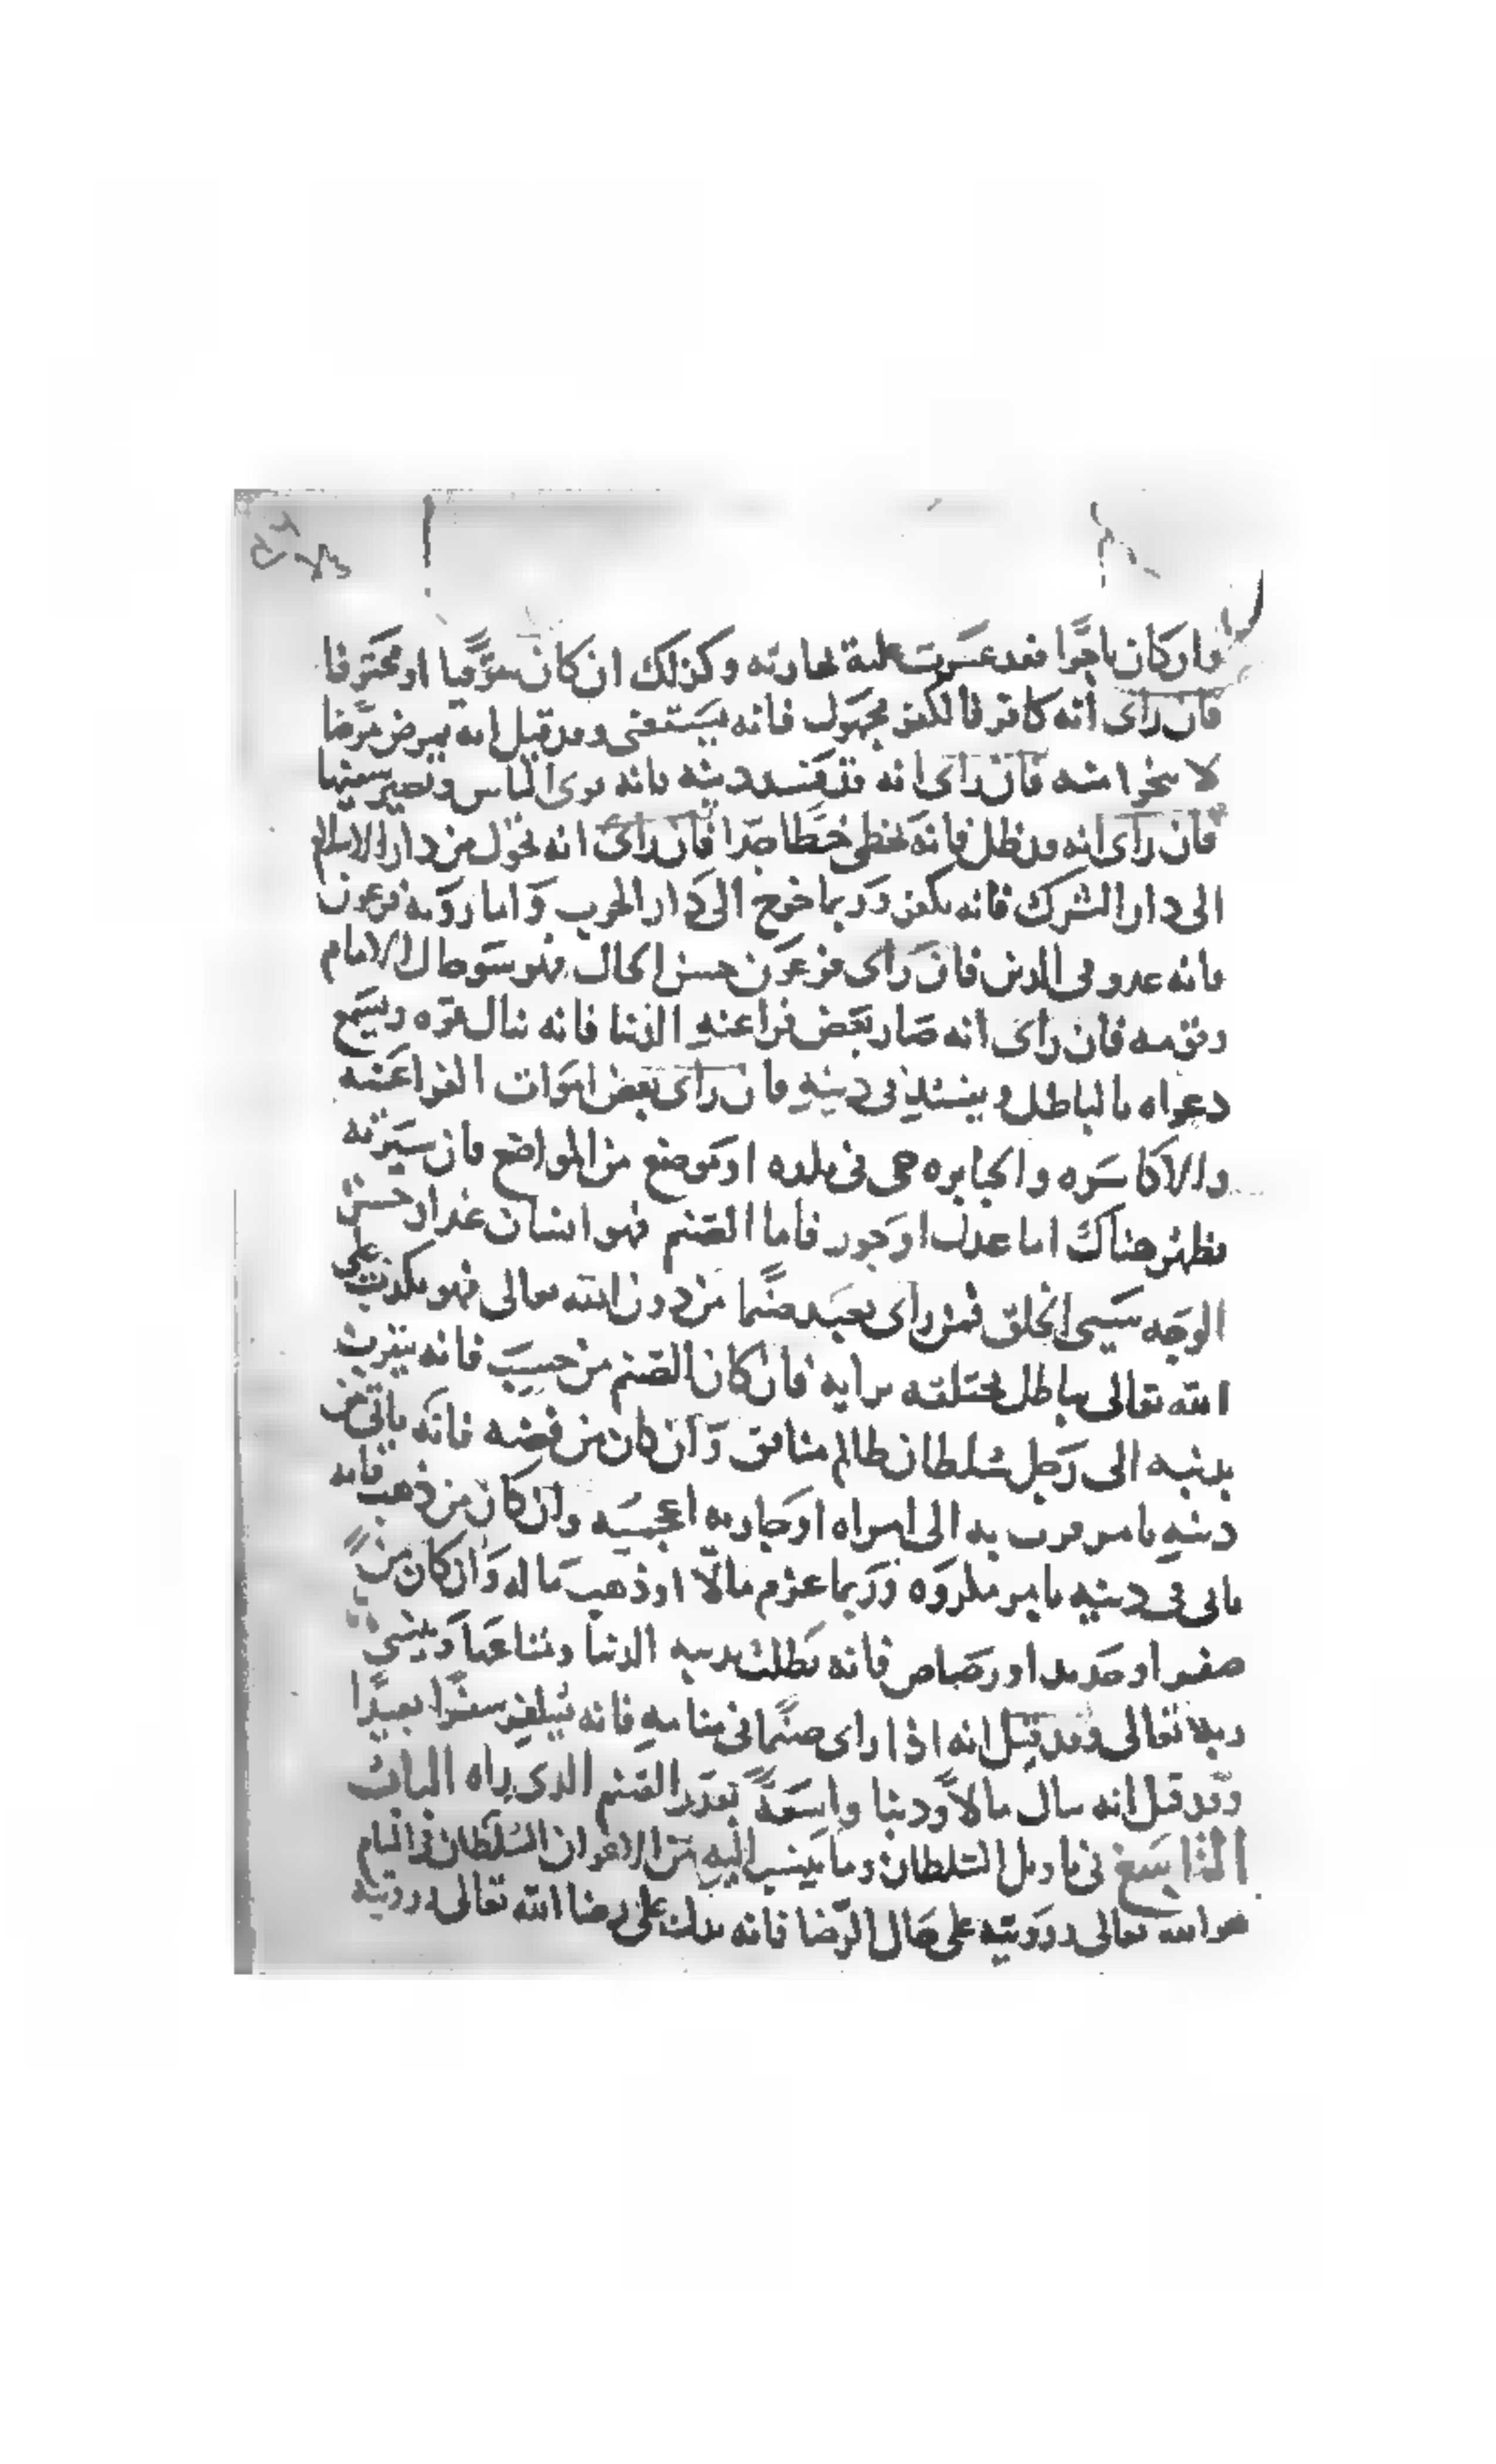 وان كان تاجرا فقد عسرت عليه تجارته وكذلك ان كان سوقيا او محترفا
فان راى انه كافر فالكفر مجهول فانه يستغنى وقد قيل انه يمرض مرضا
لا ينجوا منه فان راى انه قد فسد دينه فانه يوذى الناس ويصير سفيها
فان راى انه قد ظل فانه يخطى خطا جدا فان راى انه تحول من دار الاسلام
الى دار الشرك فانه يكفر وربما خرج الى دار الحرب واما روية فرعون
فانه عدو فى الدين فان راى فرعون حسن الحال فهو سو حال الامام
فان راى انه صار بعض فراعنه الدنيا فانه ينال قوه ويسمع
دعواه بالباطل ويفسد فى دينه فان راى بعض اموات الفراعنه
والاكاسره والجبابره حى فى بلده او موضع من المواضع فان سيرته
تظهر هناك اما عدل او جور فاما الصنم فهو انسان غدار حسن
الوجه سيى الخلق فمن راى يعبد صنما من دون الله تعالى فهو يكذب على
الله تعالى بباطل يختلقه برايه فان كان الصنم من خشب فانه يتقرب
بدينه الى رجل سلطان ظالم منافق وان كان من فضه فانه ياتى من
دينه بامر يقرب به الى امراه او جاريه اعجميه وان كان من ذهب فانه
ياتى فى دينه بامر مكروه وربما غرم مالا او ذهب ماله وان كان من
صفر او حديد او رصاص فانه يطلب بدينه الدنيا ومتاعها وينسى
ربه تعالى وقد قيل انه اذا راى صنما فى منامه فانه يسافر سفرا بعيدا
وقد قيل انه ينال مالا ودنيا واسعة بقدر الصنم الذى راه الباب
التاسع فى تاويل السلطان وما ينسب اليه من الاعوان السلطان فى المنام
هو الله تعالى ورويته على حال الرضا فانه يدل على رضا الله تعالى ورويته